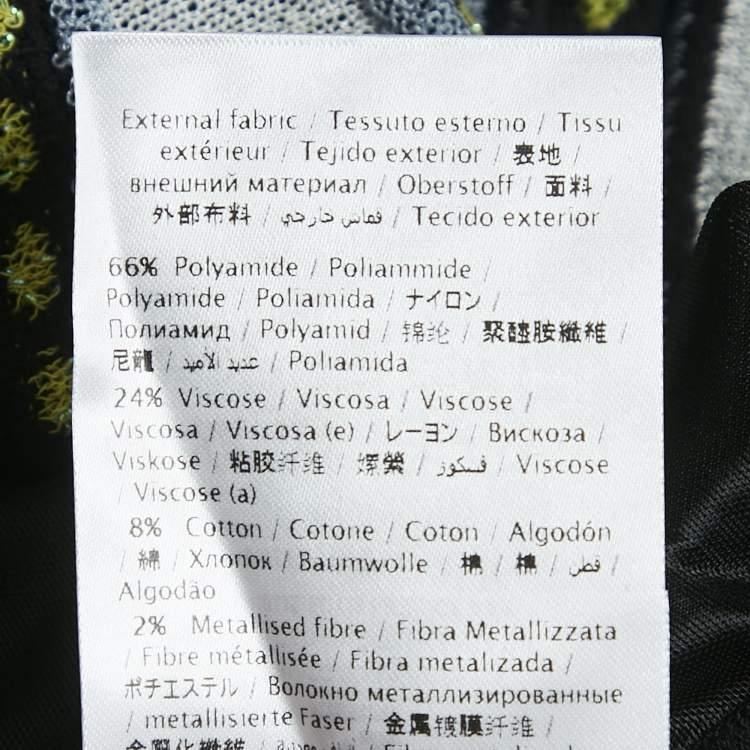 External fabric / Tessuto esterno / Tissu
extérieur / Tejido exterior / 表地 /
внешний материал / Oberstoff / 面料 /
外部布料 / قماش خارجي / Tecido exterior
66% Polyamide / Poliammide /
Polyamide / Poliamida / ナイロン /
Полиамид / Polyamid / 锦纶 / 聚醯胺纖維 /
尼龍 / عديد الاميد / Poliamida
24% Viscose / Viscosa / Viscose /
Viscosa / Viscosa (e) / レーヨン / Вискоза /
Viskose / 粘胶纤维 / 嫘縈 / فسكوز / Viscose
/ Viscose (a)
8% Cotton / Cotone / Coton / Algodón
/ 綿 / Хлопок / Baumwolle / 棉 / 棉 / قطن /
Algodão
2% Metallised fibre / Fibra Metallizzata
/ Fibre métallisée / Fibra metalizada /
ポチエステル / Волокно металлизированные
/ metallisierte Faser / 金属镀膜纤维 /
金屬化纖維 / Fibra